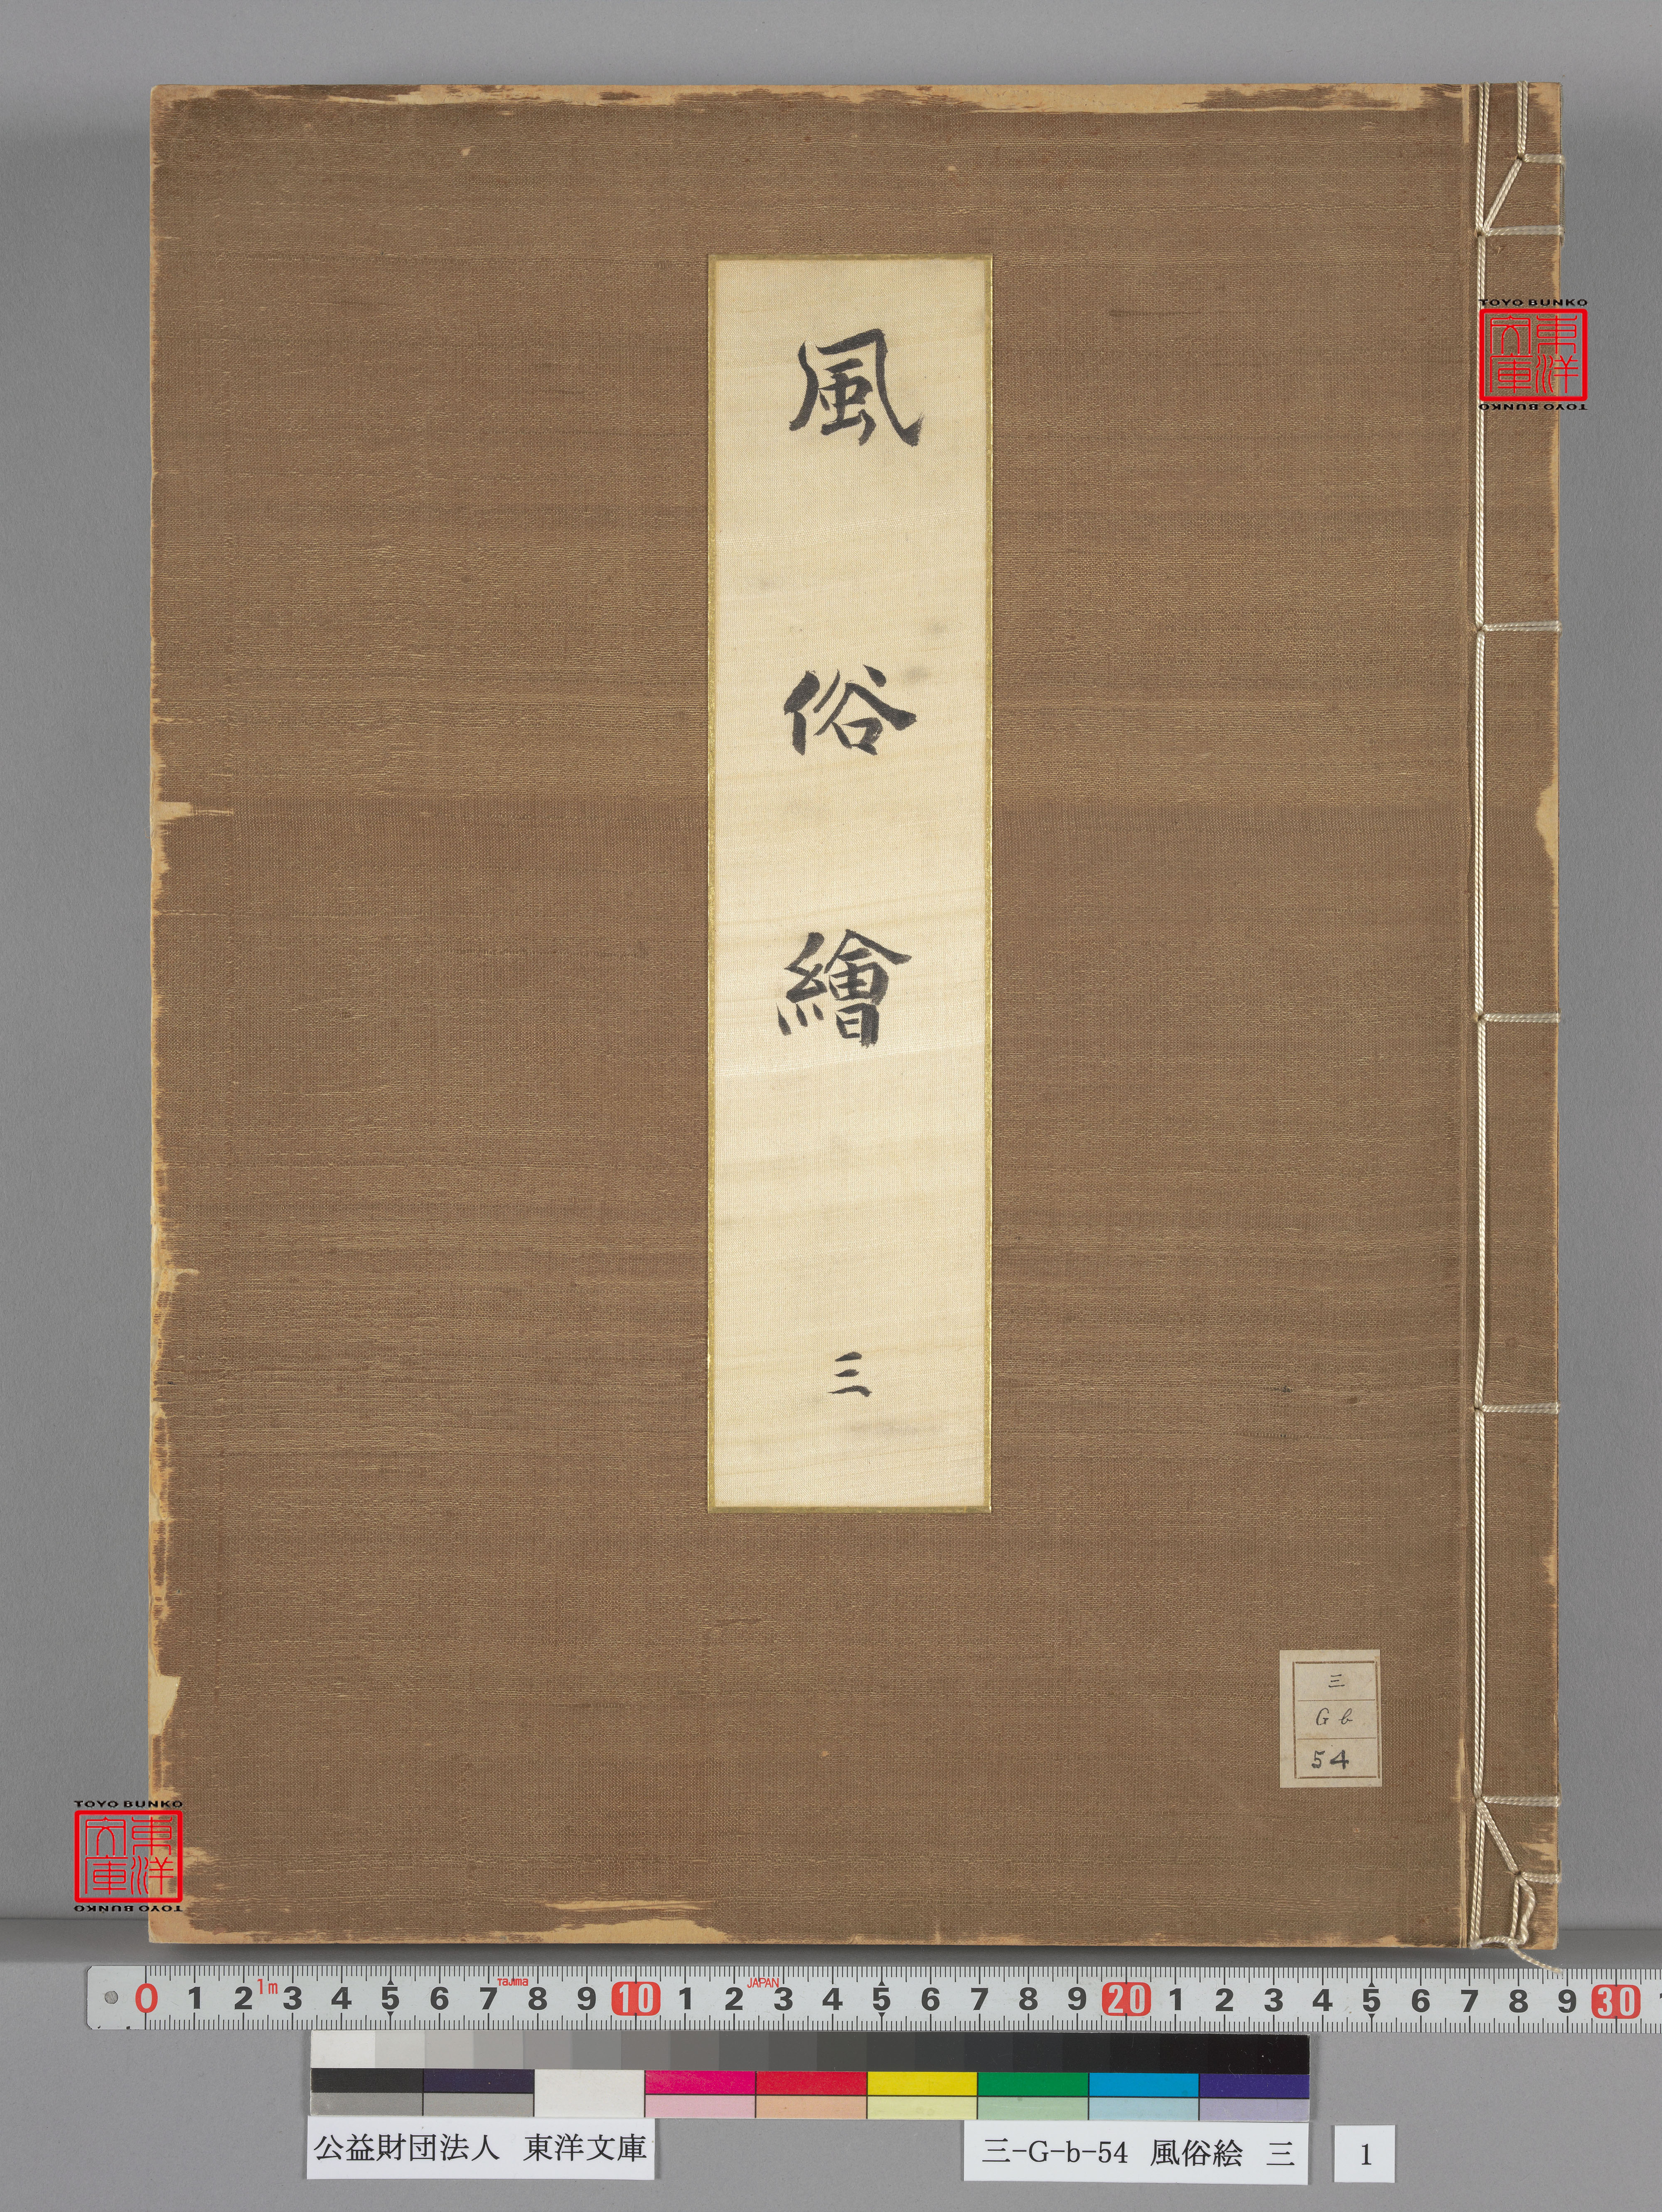 風俗繪
三
TOYO BUNKO
東洋文庫
TOYO BUNKO
三
G b
54
TOYO BUNKO
東洋文庫
TOYO BUNKO
0 1 2 1m 3 4 5 6 7 Tajima 8 9 10 1 2 JAPAN 3 4 5 6 7 8 9 20 1 2 3 4 5 6 7 8 9 30
公益財団法人 東洋文庫
三-G-b-54 風俗絵 三
1